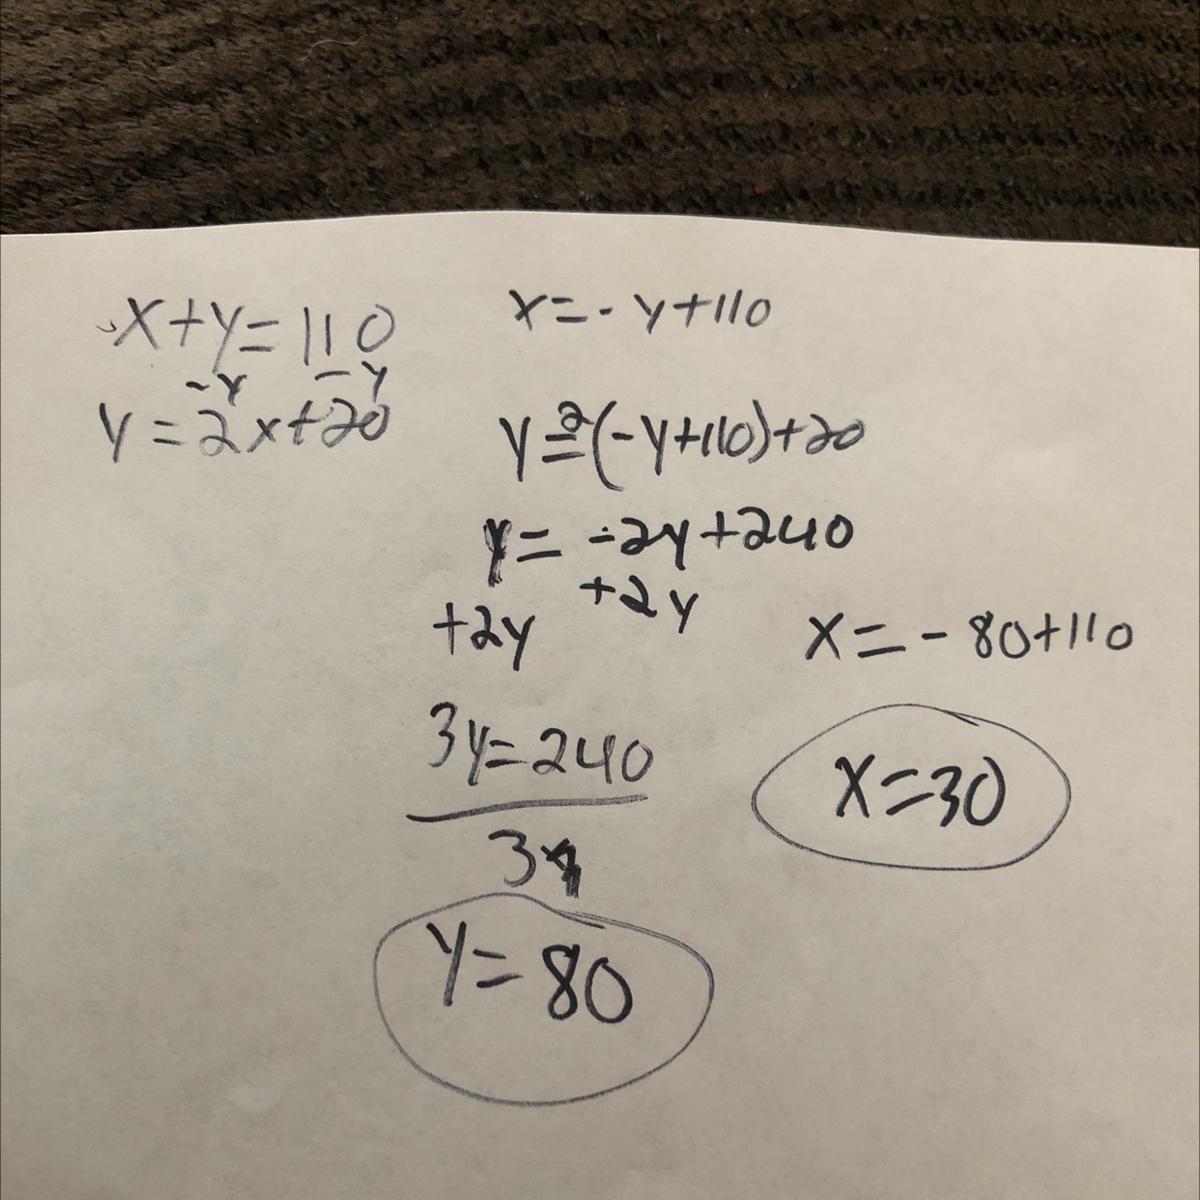 x+y=110
-y -y
y=2x+20
x=-y+110
y=2(-y+110)+20
y=-2y+240
+2y +2y
3y=240
3
y=80
x=-80+110
x=30